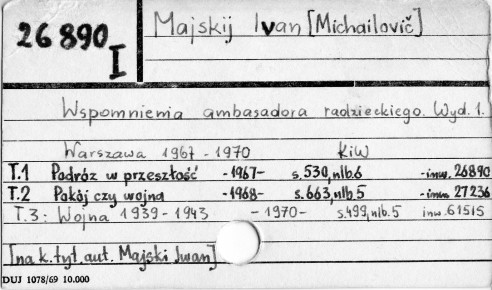 26 890
I
Majskij Ivan [Michailovič]
Wspomnienia ambasadora radzieckiego. Wyd. 1.
Warszawa 1967 - 1970 KiW
T.1 Podróż w przeszłość -1967- s.530,nlb.6 -inw. 26890
T.2 Pokój czy wojna -1968- s.663,nlb.5 -inw. 27236
T.3: Wojna 1939 - 1943 - 1970 - s.499,nlb.5 inw. 61515
[na k.tyt.aut. Majski Iwan]
DUJ 1078/69 10.000